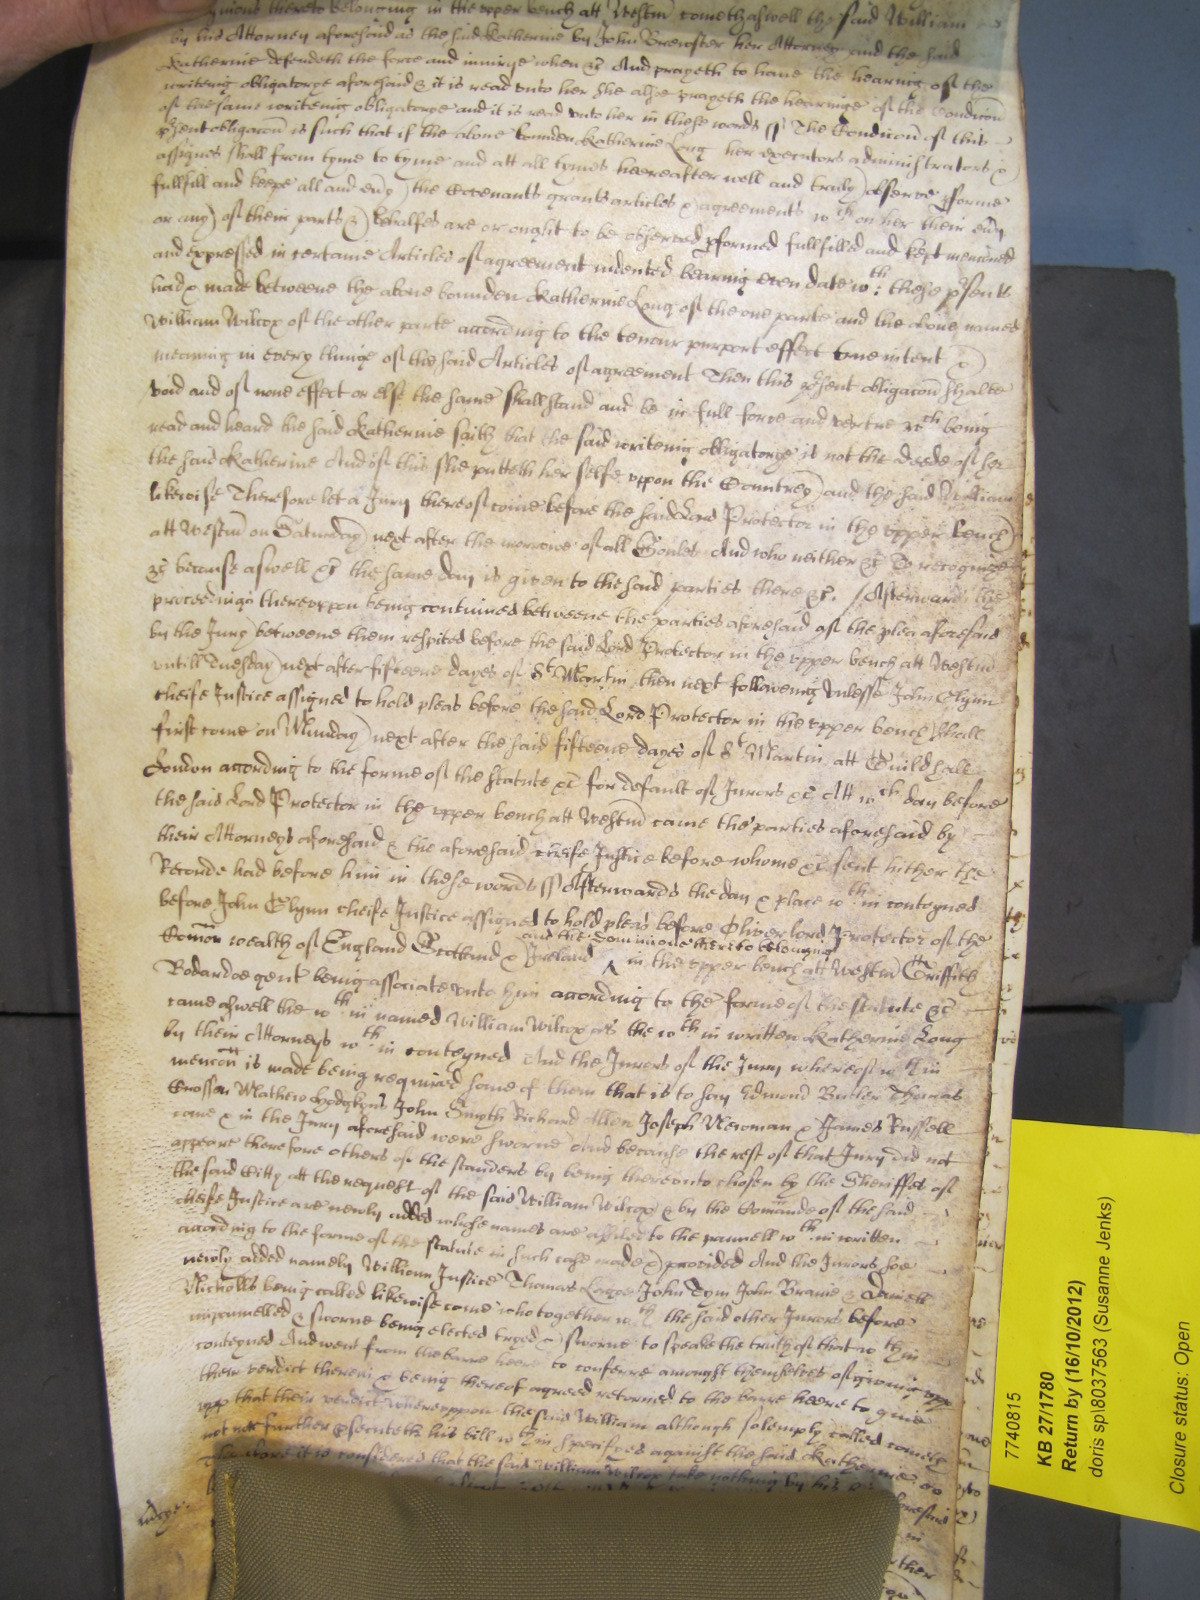 thereto belonging in the upper bench att Westm cometh aswell the said William
by his Attorney aforesaid as the said Katherine by John Brewster her Attorney and the said
Katherine defendeth the force and iniurye when &c And prayeth to haue the hearing of the
writeing obligatorye aforesaid & it is read unto her she alsoe prayeth the hearinge of the Condicon
of the same writeing obligatorye and it is read unto her in these words ss The Condicon of this
psent obligacon is such that if the aboue bounden Katherine Long her executors administrators &
assignes shall from tyme to tyme and att all tymes heereafter well and truly obserue pforme
fullfill and keepe all and eury the Couenants grants articles & agreements wch on her their eury
or any of their parts & behalfes are or ought to be obserued pformed fullfilled and kept menconed
and expressed in certaine Articles of agreement indented bearing euen date wth these psents
had & made betweene the aboue bounden Katherine Long of the one parte and the aboue named
William Wilcox of the other parte according to the tenour purport effect true intent &
meaning in every thinge of the said Articles of agreement Then this psent obligacon shalbe
void and of none effect or else the same shall stand and be in full force and vertue wch being
read and heard the said Katherine saith that the said writeing obligatorye is not the deede of her
the said Katherine And of this she putteth her selfe uppon the Countrey and the said William
likewise Therefore let a Jury thereof come before the said Lord Protector in the upper bench
att Westm on Saturday next after the morrowe of all Soules And who neither &c To recognize
&c because aswell &c the same day is giuen to the said parties there &c. Afterwards the
proceedings thereuppon being continued betweene the parties aforesaid of the plea aforesaid
by the Jury betweene them respited before the said Lord Protector in the upper bench att Westm
untill Tuesday next after fifteene dayes of St Martin then next following Unlesse John Glynn
cheife Justice assigned to hold pleas before the said Lord Protector in the upper bench shall
first come on Munday next after the said fifteene dayes of St Martin att Guildhall
London according to the forme of the statute &c for default of Jurors &c Att wch day before
the said Lord Protector in the upper bench att Westm came the parties aforesaid by
their Attorneys aforesaid & the aforesaid cheife Justice before whome &c sent hither the
Recorde had before him in these words ss Afterwards the day & place wth in conteyned
before John Glynn cheife Justice assigned to hold pleas before Oliver lord Protector of the
and the Dominions thereto belonging
Comon wealth of England Scotland & Ireland ^ in the upper bench att Westm Griffith
Bodardoe gent being associate unto him according to the forme of the statute &c
came aswell the wth in named William Wilcox as the wth in written Katherine Long
by their Attorneys wth in conteyned And the Jurors of the Jury whereof wth in
mencon is made being required some of them that is to say Edmond Butler Thomas
Crosson Mathew Hodgkyns John Smyth Richard Allen Joseph Newman & James Russell
come & in the Jury aforesaid were sworne And because the rest of that Jury did not
appeare therefore others of the standers by being thereunto chosen by the Sheriffes of
the said Citty att the request of the said William Wilcox & by the Comande of the said
cheife Justice are newly added whose names are affiled to the pannell wth in written
according to the forme of the statute in such case made & prouided And the Jurors soe
newly added namely William Justice Thomas John Tym John Brame & Daniell
Nicholls being called likewise come who together wth the said other Jurors before
impannelled & sworne being elected tryed & sworne to speake the truth of that wthin
conteyned And went from the barre heere to conferre amongst themselues of giueing upp
their verdict therein & being thereof agreed returned to the barre heere to giue
upp that their verdict Whereuppon the said William although solemply called cometh
not nor further psecuteth his bill wthin specifyed against the said Katherine
Therefore it is considered that the said William Wilcox take nothing by his bill
7740815
KB 27/1780
Return by (16/10/2012)
doris sp\8037563 (Susanne Jenks)
Closure status: Open